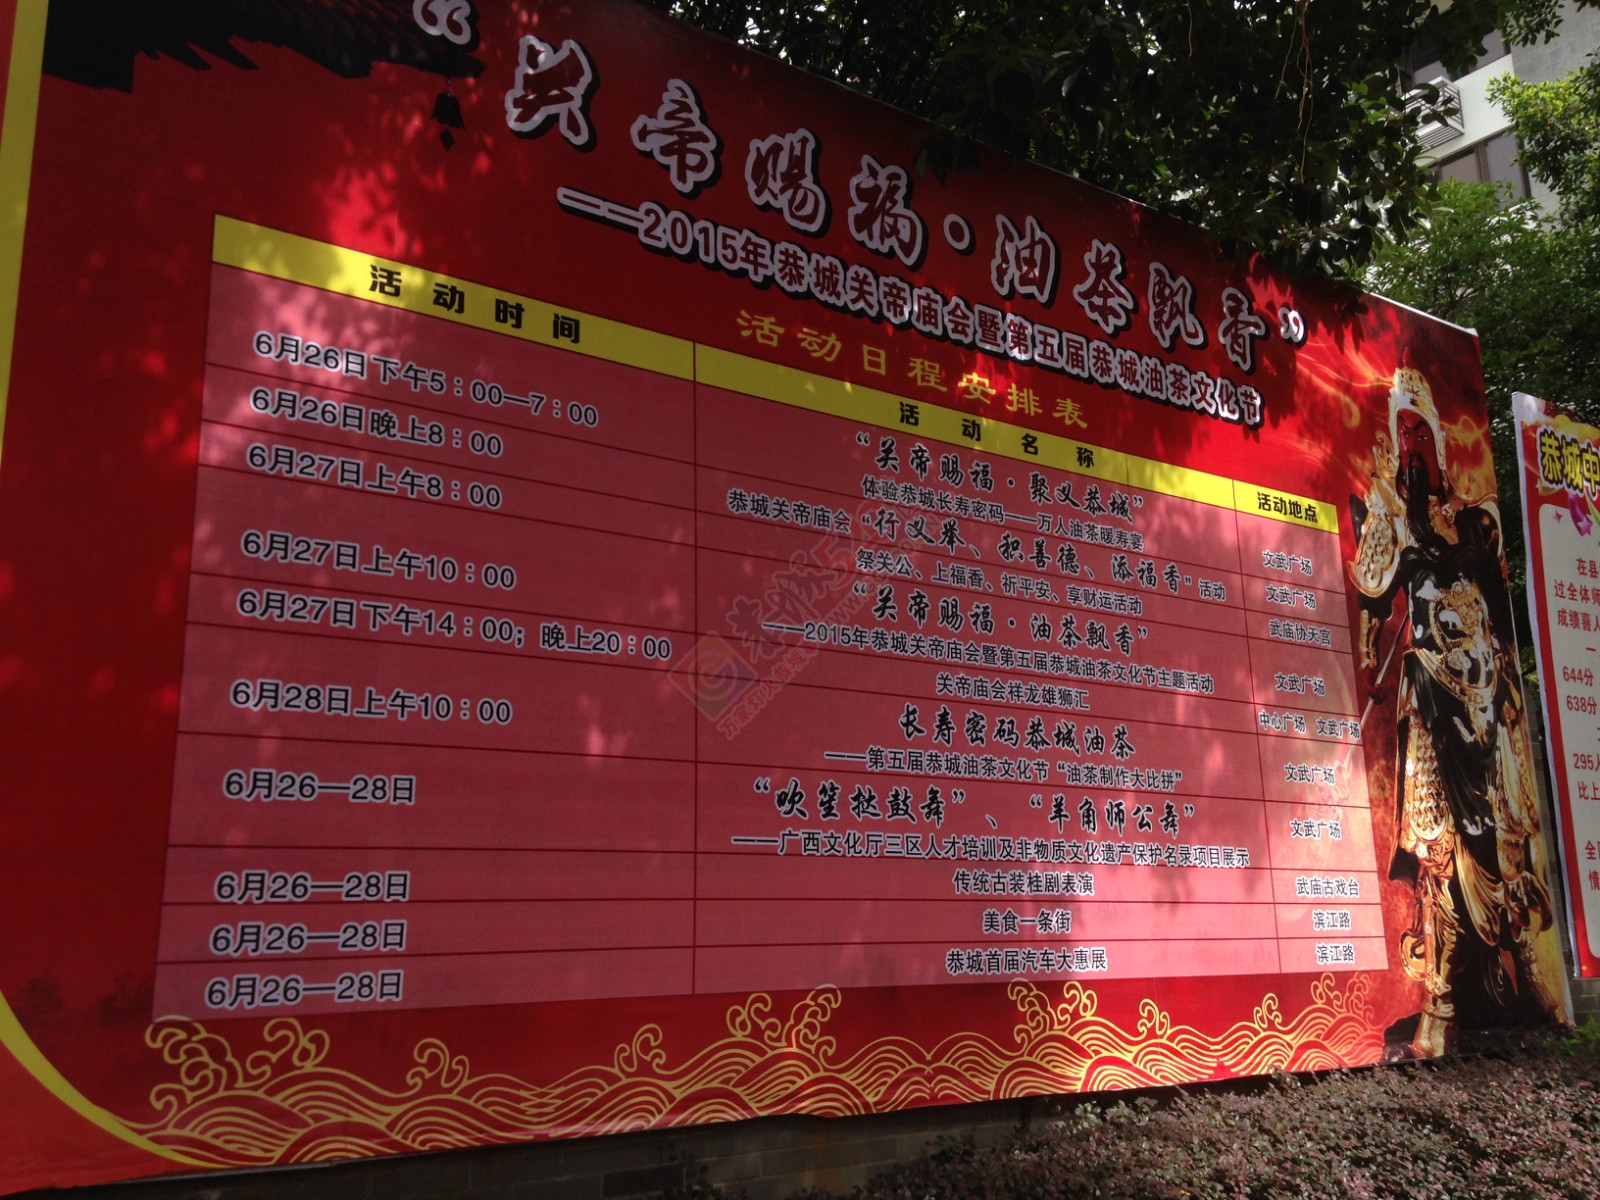 “关帝赐福·油茶飘香”
——2015年恭城关帝庙会暨第五届恭城油茶文化节
活动日程安排表
活动时间 活动名称 活动地点
6月26日下午5：00—7：00 “关帝赐福·聚义恭城” 文武广场
体验恭城长寿密码——万人油茶暖寿宴
6月26日晚上8：00 恭城关帝庙会“行义举、积善德、添福香”活动 文武广场
6月27日上午8：00 祭关公、上福香、祈平安、享财运活动 武庙协天宫
6月27日上午10：00 “关帝赐福·油茶飘香” 文武广场
——2015年恭城关帝庙会暨第五届恭城油茶文化节主题活动
6月27日下午14：00；晚上20：00 关帝庙会祥龙雄狮汇 中心广场 文武广场
6月28日上午10：00 长寿密码恭城油茶 文武广场
——第五届恭城油茶文化节“油茶制作大比拼”
6月26—28日 “吹笙挞鼓舞”、“羊角师公舞” 文武广场
——广西文化厅三区人才培训及非物质文化遗产保护名录项目展示
6月26—28日 传统古装桂剧表演 武庙古戏台
6月26—28日 美食一条街 滨江路
6月26—28日 恭城首届汽车大惠展 滨江路
恭城中
在县
过全体师
成绩喜人
一
644分
638分
295人
比上
全
情